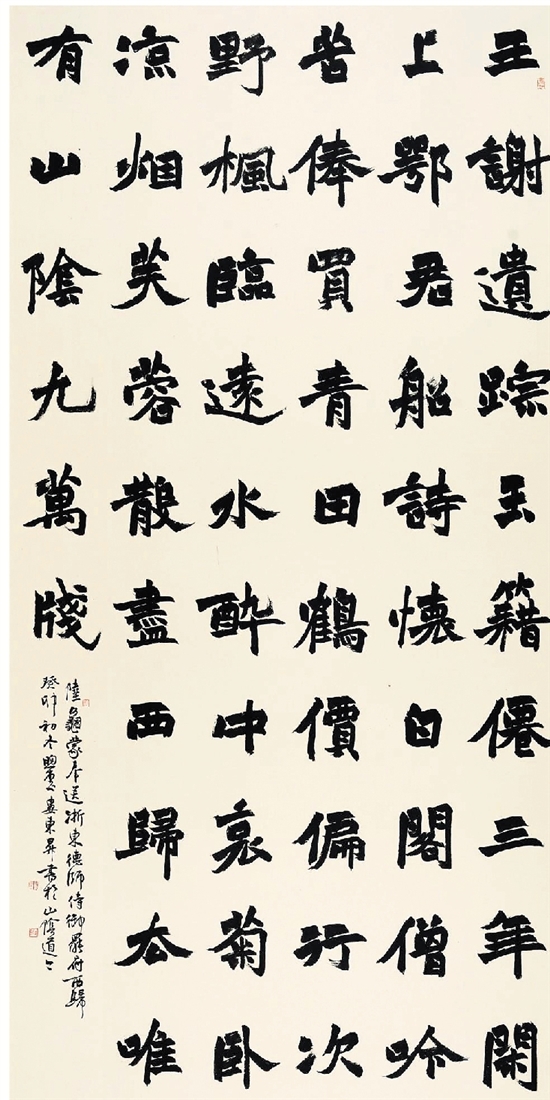 王謝遺踪玉籍僊三年閑
上鄂君船詩懷白閣僧吟
苦俸買青田鶴價偏行次
野楓臨遠水醉中衰菊卧
涼烟芙蓉散盡西歸去唯
有山陰九萬牋
陸龜蒙奉送浙東德師侍御罷府西歸
癸卯初冬婁東昇書於山陰道上